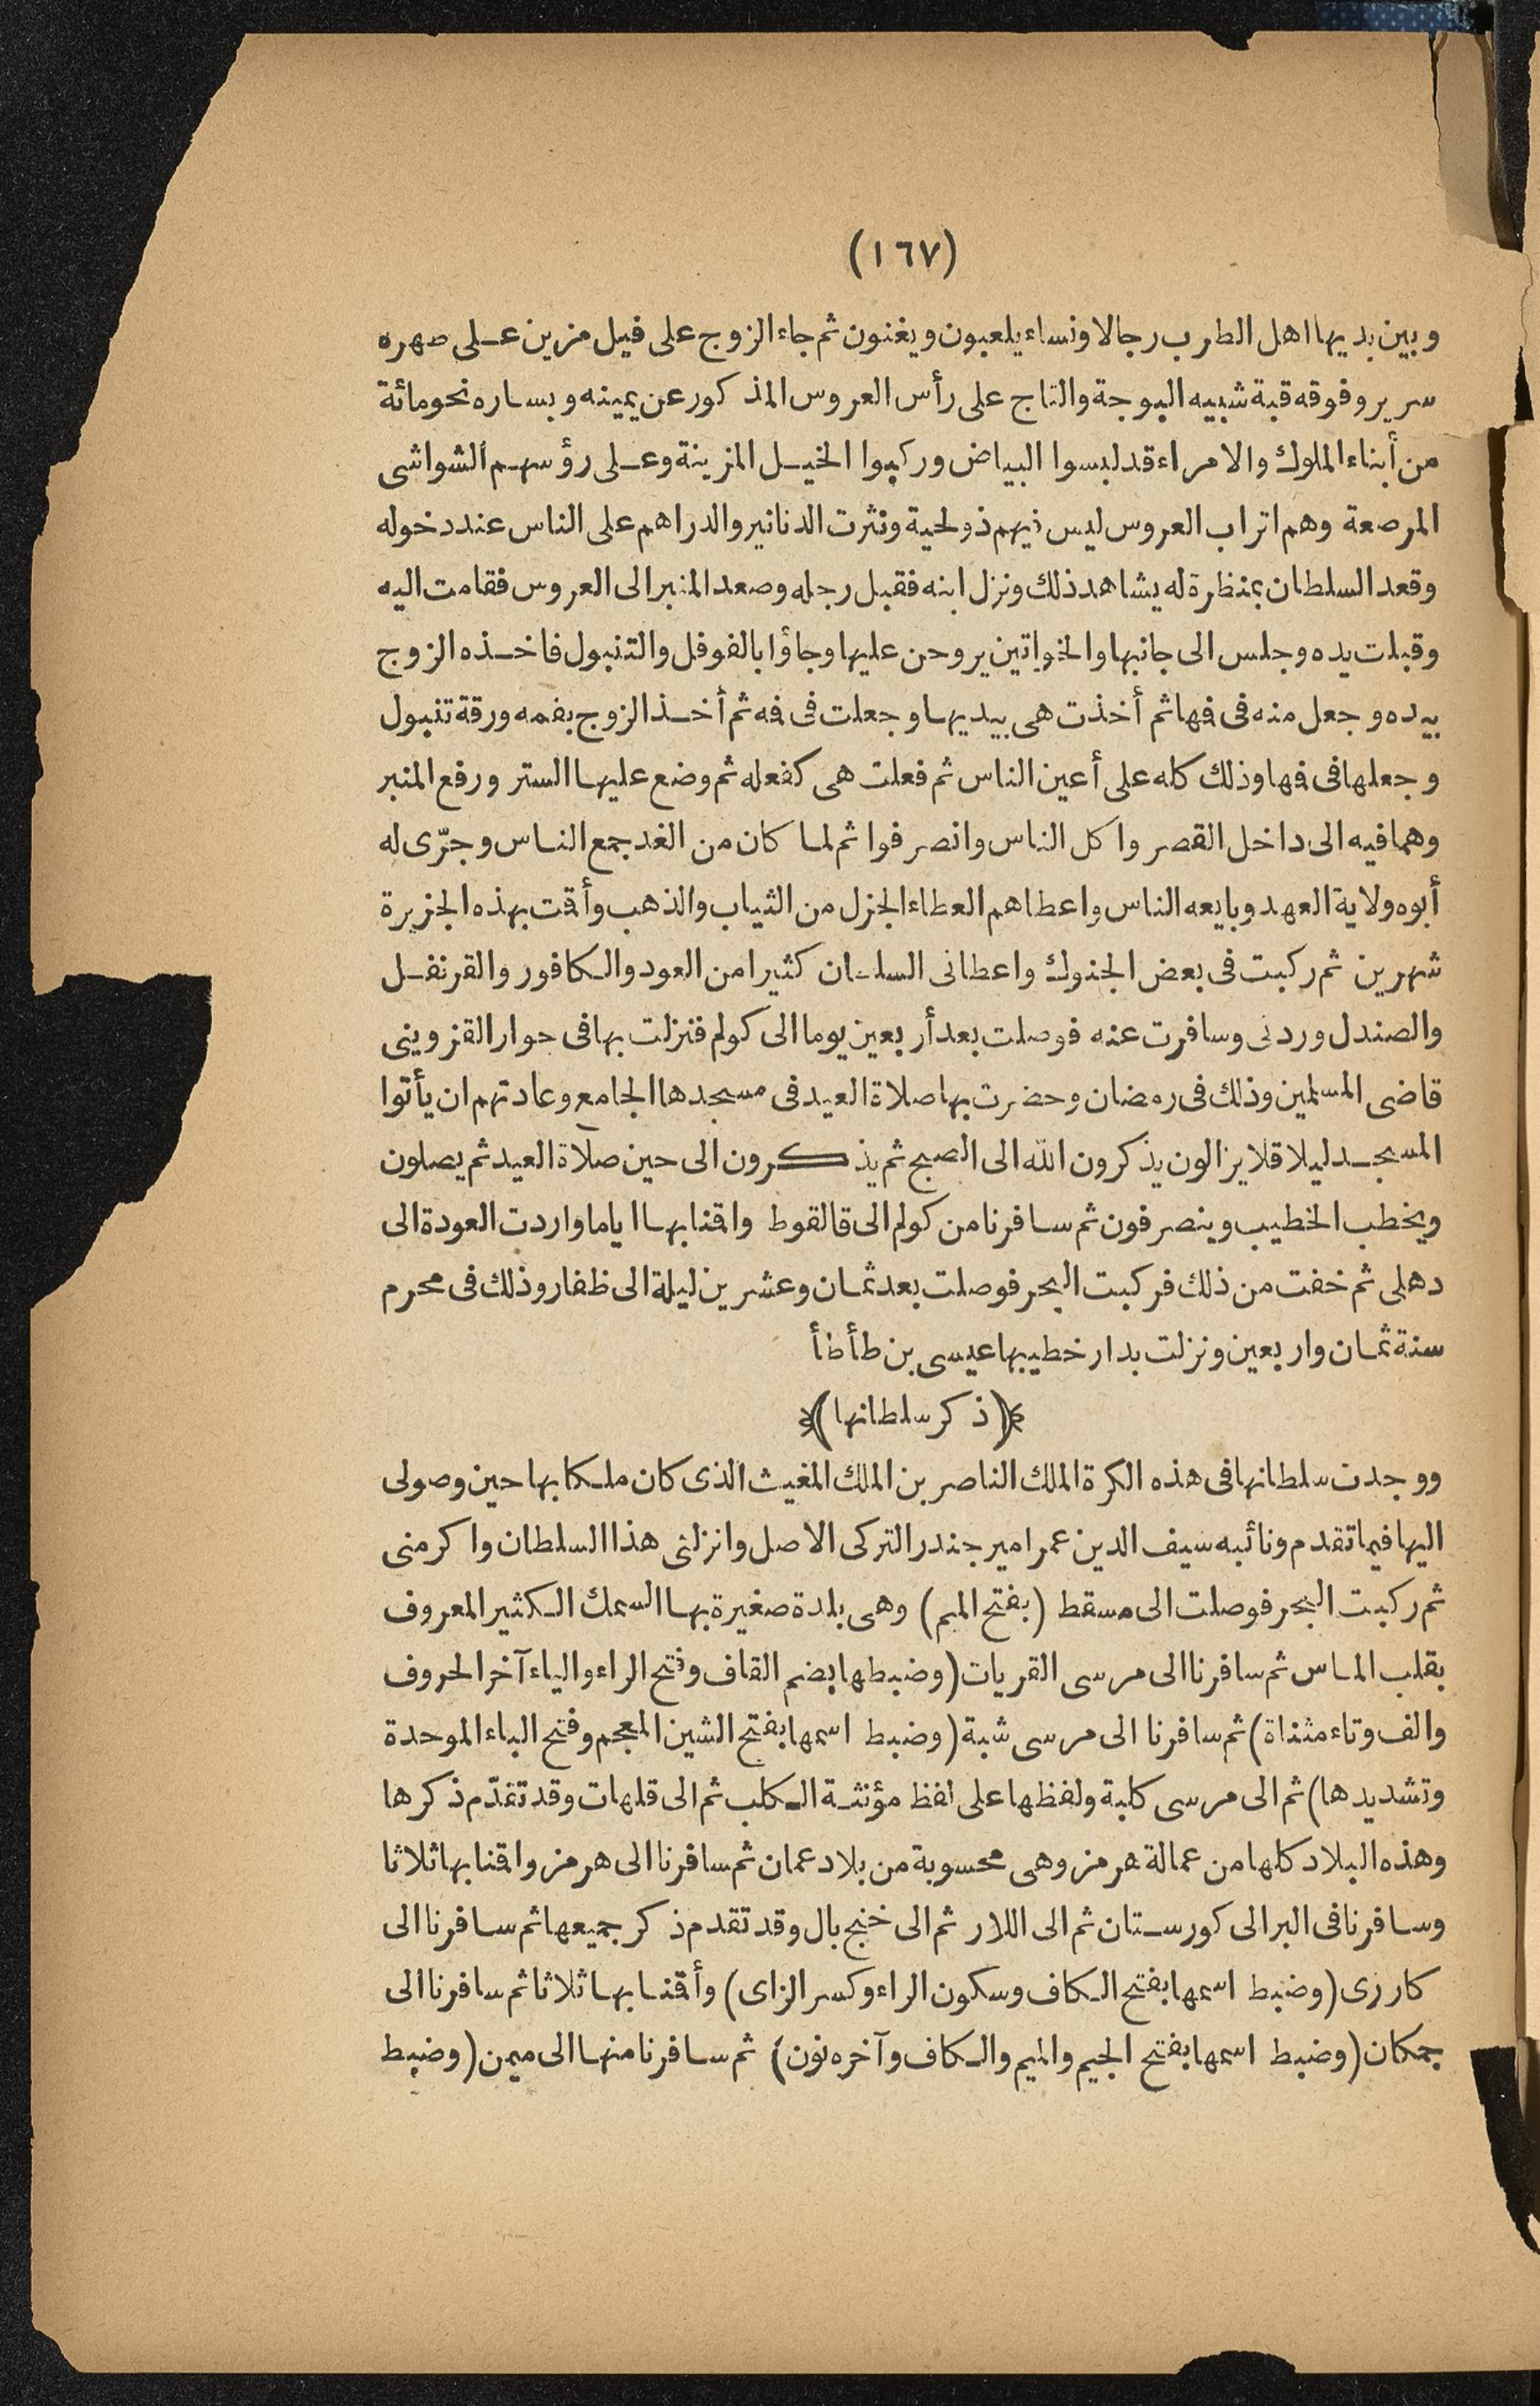 (١٦٧)
وبين يديها اهل الطرب رجالا ونساء يلعبون ويغنون ثم جاء الزوج على فيل مزين على ظهره
سرير وفوقه قبة شبيه البوجة والتاج على رأس العروس المذكور عن يمينه ويساره نحو مائة
من أبناء الملوك والامراء قد لبسوا البياض وركبوا الخيل المزينة وعلى رؤسهم الشواشى
المرصعة وهم اتراب العروس ليس فيهم ذو لحية ونثرت الدنانير والدراهم على الناس عند دخوله
وقعد السلطان بمنظرة له يشاهد ذلك ونزل ابنه فقبل رجله وصعد المنبر الى العروس فقامت اليه
وقبلت يده وجلس الى جانبها والخواتين يروحن عليها وجاؤا بالفوفل والتنبول فاخذه الزوج
بيده وجعل منه فى فها ثم أخذت هى بيديها وجعلت فى فه ثم أخذ الزوج بفمه ورقة تنبول
وجعلها فى فها وذلك كله على أعين الناس ثم فعلت هى كفعله ثم وضع عليها الستر ورفع المنبر
وهما فيه الى داخل القصر واكل الناس وانصرفوا ثم لما كان من الغد جمع الناس وجرّى له
أبوه ولاية العهد وبايعه الناس واعطاهم العطاء الجزل من الثياب والذهب وأقت بهذه الجزيرة
شهرين ثم ركبت فى بعض الجنوك واعطانى السلطان كثيرا من العود والكافور والقرنفل
والصندل وردنى وسافرت عنه فوصلت بعد أربعين يوما الى كولم فنزلت بها فى جوار القزوينى
قاضى المسلمين وذلك فى رمضان وحضرت بها صلاة العيد فى مسجدها الجامع وعادتهم ان يأتوا
المسجد ليلا قلا يزالون يذكرون الله الى الصبح ثم يذكرون الى حين صلاة العيد ثم يصلون
ويخطب الخطيب وينصرفون ثم سافرنا من كولم الى قالقوط واقنا بها اياما واردت العودة الى
دهلى ثم خفت من ذلك فركبت البحر فوصلت بعد ثمان وعشرين ليلة الى ظفار وذلك فى محرم
سنة ثمان واربعين ونزلت بدار خطيبها عيسى بن طأطأ
(ذكر سلطانها)
ووجدت سلطانها فى هذه الكرة الملك الناصر بن الملك المغيث الذى كان ملكا بها حين وصولى
اليها فيما تقدم ونائبه سيف الدين عمر امير جندر التركى الاصل وانزلنى هذا السلطان واكرمنى
ثم ركبت البحر فوصلت الى مسقط (بفتح الميم) وهى بلدة صغيرة بها السمك الكثير المعروف
بقلب الماس ثم سافرنا الى مرسى القريات (وضبطها بضم القاف وفتح الراء والياء آخر الحروف
والف وتاء مثناة) ثم سافرنا الى مرسى شبة (وضبط اسمها بفتح الشين المعجم وفتح الباء الموحدة
وتشديدها) ثم الى مرسى كلبة ولفظها على لفظ مؤنثة الكلب ثم الى قلهات وقد تقدّم ذكرها
وهذه البلاد كلها من عمالة هرمز وهى محسوبة من بلاد عمان ثم سافرنا الى هرمز واقنا بها ثلاثا
وسافرنا فى البر الى كورستان ثم الى اللار ثم الى خنج بال وقد تقدم ذكر جميعها ثم سافرنا الى
كارزى (وضبط اسمها بفتح الكاف وسكون الراء وكسر الزاى) وأقنا بها ثلاثا ثم سافرنا الى
جمكان (وضبط اسمها بفتح الجيم والميم والكاف وآخره نون) ثم سافرنا منها الى ميمن (وضبط